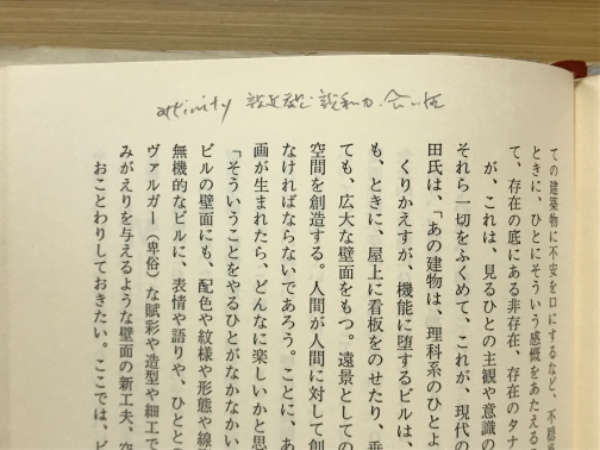 affinity
ての建築物に不安を口にするなど、不穏当
ときに、ひとにそういう感慨をあたえる
て、存在の底にある非存在、存在のタナ
が、これは、見るひとの主観や意識の
それら一切をふくめて、これが、現代の
田氏は、「あの建物は、理科系のひとよ
くりかえすが、機能に堕するビルは、
も、ときに、屋上に看板をのせたり、垂
ても、広大な壁面をもつ。遠景としての
空間を創造する。人間が人間に対して創
なければならないであろう。ことに、あ
画が生まれたら、どんなに楽しいかと思
「そういうことをやるひとがなかなかい
ビルの壁面にも、配色や紋様や形態や線
無機的なビルに、表情や語りや、ひとと
ヴァルガー（卑俗）な賦彩や造型や細工で
みがえりを与えるような壁面の新工夫、空
おことわりしておきたい。ここでは、ビ